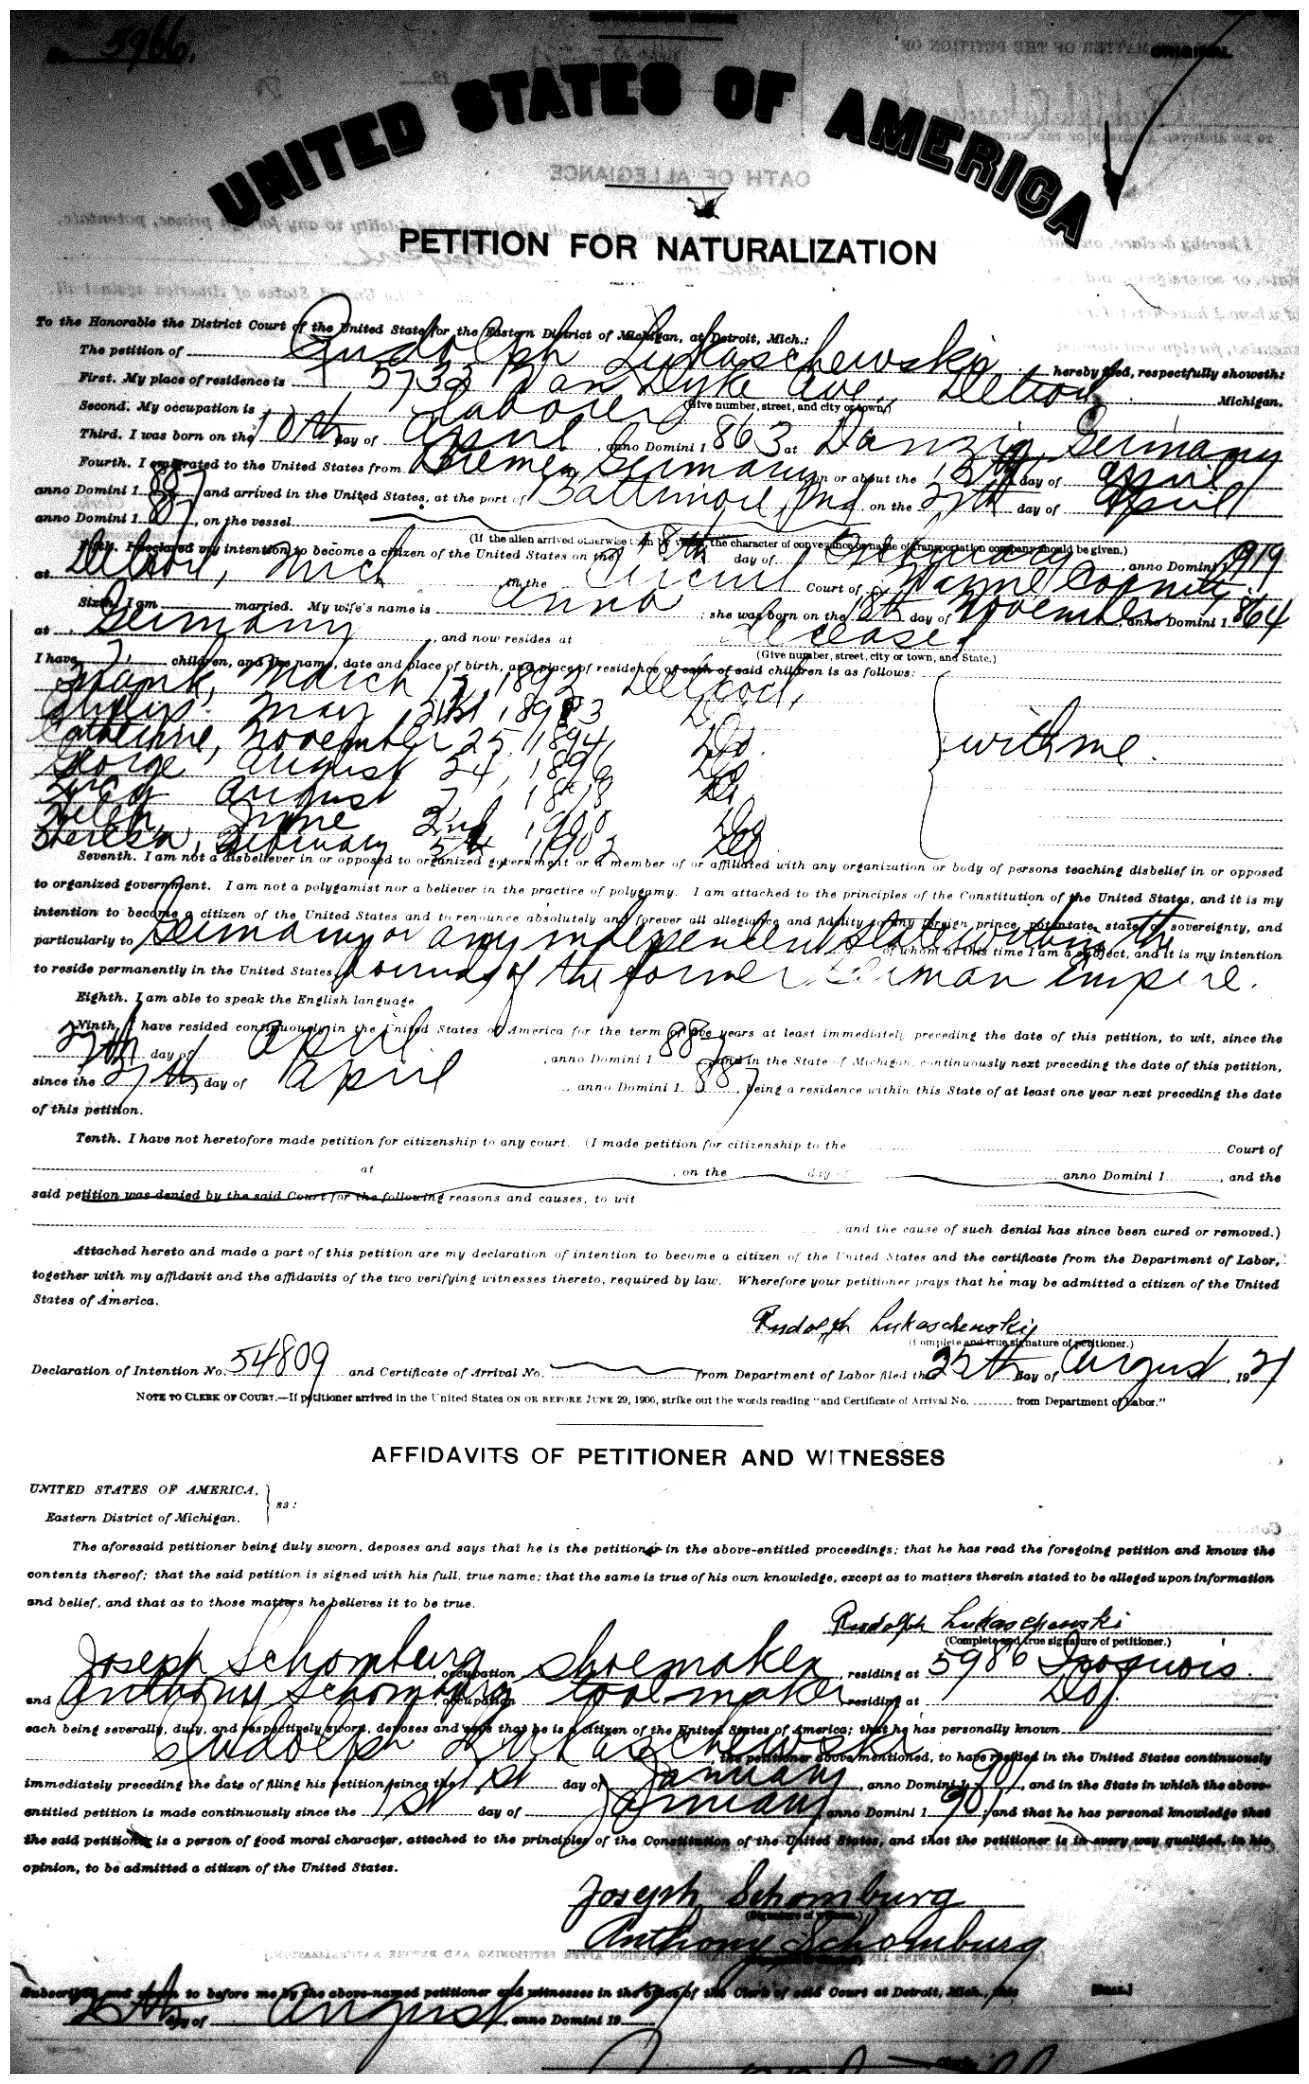 No. 5966.
ORIGINAL
UNITED STATES OF AMERICA
PETITION FOR NATURALIZATION
To the Honorable the District Court of the United State for the Eastern District of Michigan, at Detroit, Mich.:
The petition of Rudolph Lukaschewski hereby filed, respectfully showeth:
First. My place of residence is 5732 Van Dyke Ave., Detroit Michigan.
(Give number, street, and city or town.)
Second. My occupation is laborer
Third. I was born on the 10th day of April, anno Domini 1863 at Danzig Germany
Fourth. I emigrated to the United States from Bremen Germany on or about the 13th day of April
anno Domini 1887, and arrived in the United States, at the port of Baltimore, Md on the 27th day of April
anno Domini 1887, on the vessel
(If the alien arrived otherwise than by vessel, the character of conveyance or name of transportation company should be given.)
Fifth. I declared my intention to become a citizen of the United States on the 18th day of February, anno Domini 1919
at Detroit, Mich in the Circuit Court of Wayne County.
Sixth. I am married. My wife's name is Anna; she was born on the 18th day of November, anno Domini 1864
at Germany, and now resides at deceased
(Give number, street, city or town, and State.)
I have 7 children, and the name, date and place of birth, and place of residence of each of said children is as follows:
Frank, March 12, 1892 Detroit,
May 21st, 1893 Do.
Catherine, November 25, 1894, Do. with me.
George August 24, 1896 Do
August 7, 1898 Do
Helen, June 2nd 1900 Do
Theresa, February 5th 1902 Do
Seventh. I am not a disbeliever in or opposed to organized government or a member of or affiliated with any organization or body of persons teaching disbelief in or opposed
to organized government. I am not a polygamist nor a believer in the practice of polygamy. I am attached to the principles of the Constitution of the United States, and it is my
intention to become a citizen of the United States and to renounce absolutely and forever all allegiance and fidelity to any foreign prince, potentate, state, or sovereignty, and
particularly to Germany or any independent state within the of whom at this time I am a subject, and it is my intention
to reside permanently in the United States. bounds of the former German Empire.
Eighth. I am able to speak the English language.
Ninth. I have resided continuously in the United States of America for the term of five years at least immediately preceding the date of this petition, to wit, since the
27th day of April, anno Domini 1887, and in the State of Michigan, continuously next preceding the date of this petition,
since the 27th day of April, anno Domini 1887, being a residence within this State of at least one year next preceding the date
of this petition.
Tenth. I have not heretofore made petition for citizenship to any court. (I made petition for citizenship to the Court of
at, on the day of anno Domini 1, and the
said petition was denied by the said Court for the following reasons and causes, to wit
and the cause of such denial has since been cured or removed.)
Attached hereto and made a part of this petition are my declaration of intention to become a citizen of the United States and the certificate from the Department of Labor,
together with my affidavit and the affidavits of the two verifying witnesses thereto, required by law. Wherefore your petitioner prays that he may be admitted a citizen of the United
States of America.
Rudolph Lukaschewski
(Complete and true signature of petitioner.)
Declaration of Intention No. 54809 and Certificate of Arrival No. from Department of Labor filed this 25th day of August, 1921
NOTE TO CLERK OF COURT.—If petitioner arrived in the United States ON OR BEFORE JUNE 29, 1906, strike out the words reading "and Certificate of Arrival No. ........ from Department of Labor."
AFFIDAVITS OF PETITIONER AND WITNESSES
UNITED STATES OF AMERICA,
ss:
Eastern District of Michigan.
The aforesaid petitioner being duly sworn, deposes and says that he is the petitioner in the above-entitled proceedings; that he has read the foregoing petition and knows the
contents thereof; that the said petition is signed with his full, true name; that the same is true of his own knowledge, except as to matters therein stated to be alleged upon information
and belief, and that as to those matters he believes it to be true.
Rudolph Lukaschewski
(Complete and true signature of petitioner.)
Joseph Schomburg, occupation shoemaker, residing at 5986 Iroquois.
and Anthony Schomburg, occupation toolmaker residing at Do.
each being severally, duly, and respectively sworn, deposes and says that he is a citizen of the United States of America; that he has personally known
Rudolph Lukaschewski, the petitioner above mentioned, to have resided in the United States continuously
immediately preceding the date of filing his petition, since the 1st day of January, anno Domini 1901, and in the State in which the above-
entitled petition is made continuously since the 1st day of January, anno Domini 1901, and that he has personal knowledge that
the said petitioner is a person of good moral character, attached to the principles of the Constitution of the United States, and that the petitioner is in every way qualified, in his
opinion, to be admitted a citizen of the United States.
Joseph Schomburg
(Signature of witness.)
Anthony Schomburg
Subscribed and sworn to before me by the above-named petitioner and witnesses in the office of the Clerk of said Court at Detroit, Mich., this [SEAL.]
25th day of August, anno Domini 1921